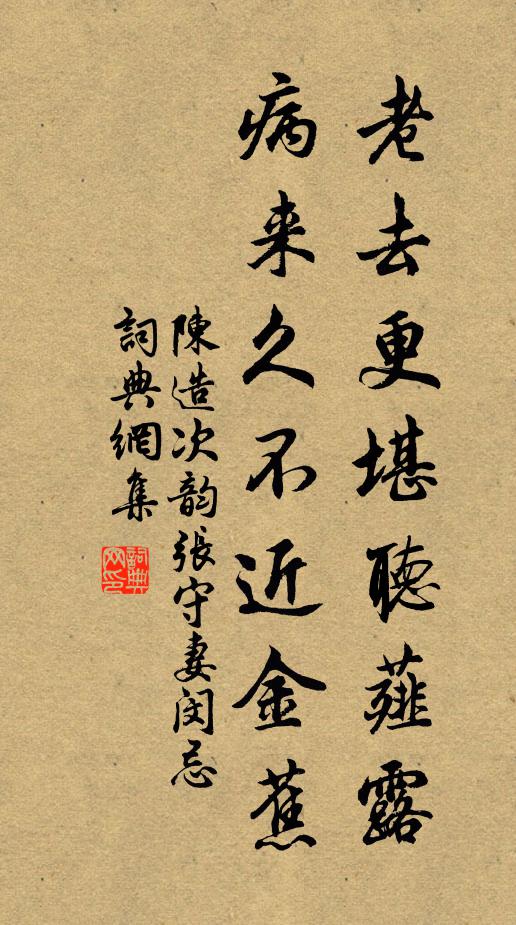 老去更堪聽薤露
病来久不近金蕉
陳造次韵張守妻闵忌
詞典網集
詞典网印